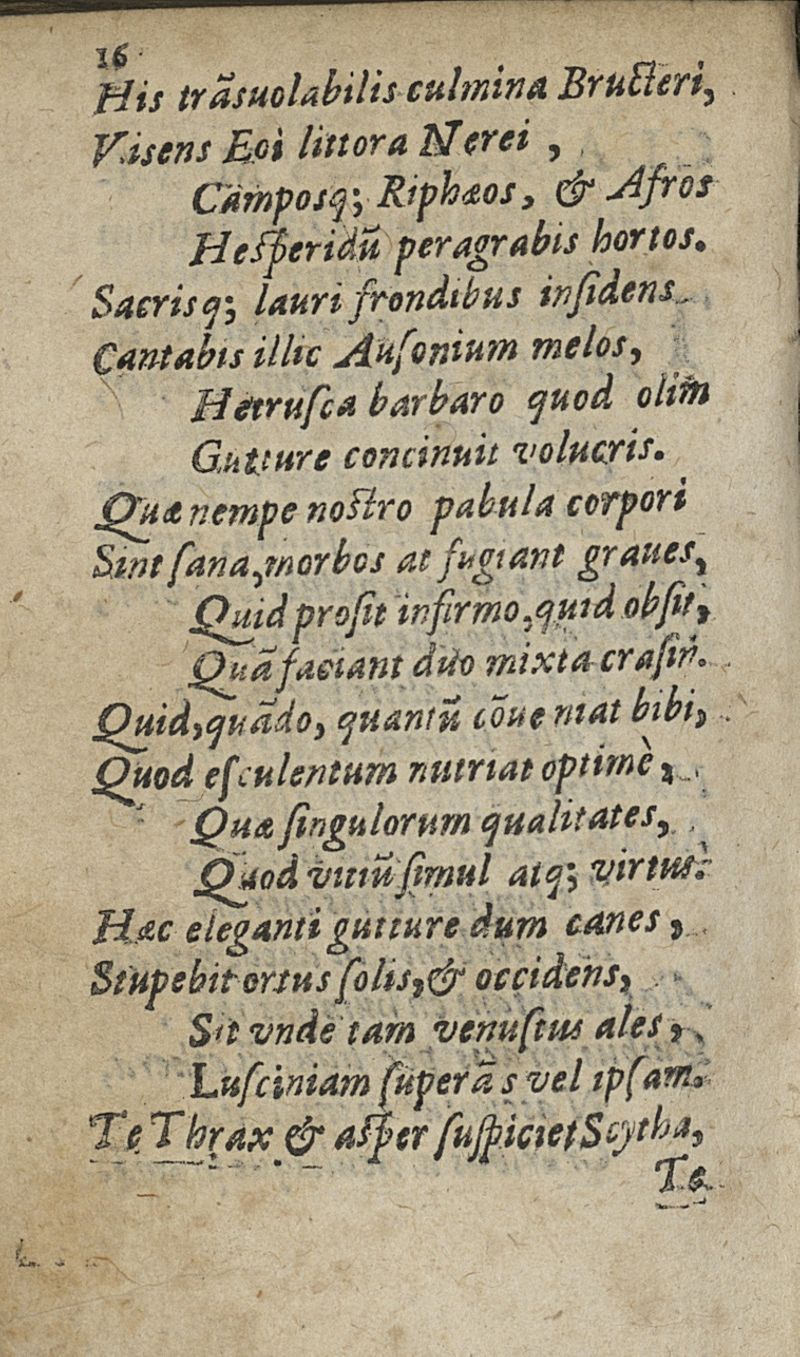 16
His trãsuolabilis culmina Bructeri,
Visens Eoi littora Nerei ,
Camposq; Riphæos, & Afros
Hesperidũ peragrabis hortos.
Sacrisq; lauri frondibus insidens
Cantabis illic Ausonium melos,
Hetrusca barbaro quod olim
Gutture concinuit volucris.
Quæ nempe nostro pabula corpori
Sint sana, morbos at fugiant graues,
Quid prosit infirmo, quid obsit,
Quã faciant duo mixta crasin.
Quid, quãdo, quantũ cõueniat bibi,
Quod esculentum nutriat optimè,
Quæ singulorum qualitates,
Quod vitiũ simul atq; virtus?
Hæc eleganti gutture dum canes ,
Stupebit ortus solis, & occidens,
Sit vnde tam venustus ales ,
Lusciniam superãs vel ipsam.
Te Thrax & asper suspiciet Scytha,
Te